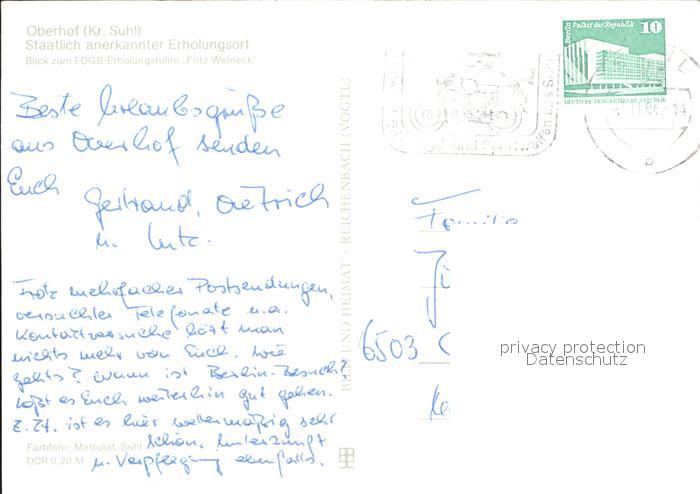 Oberhof (Kr. Suhl)
Staatlich anerkannter Erholungsort
Blick zum FDGB-Erholungsheim „Fritz Weineck"
Berlin Palast der Republik
10
DEUTSCHE DEMOKRATISCHE REPUBLIK
Jagd- und Sportwaffen aus Suhl
Beste Urlaubsgrüße
aus Oberhof senden
Euch
Gertraud, Dietrich
u. Lutz.
Trotz mehrfacher Postsendungen,
versuchter Telefonate u.a.
Kontaktversuche hört man
nichts mehr von Euch. Wie
gehts? Wann ist Berlin-Besuch?
Laßt es Euch weiterhin gut gehen.
Z. Zt. ist es hier wettermäßig sehr
schön, Unterkunft
u. Verpflegung ebenfalls.
Farbfoto: Mattutat, Suhl
DDR 0,20 M
BILD UND HEIMAT · REICHENBACH (VOGTL)
Familie
6503
privacy protection
Datenschutz